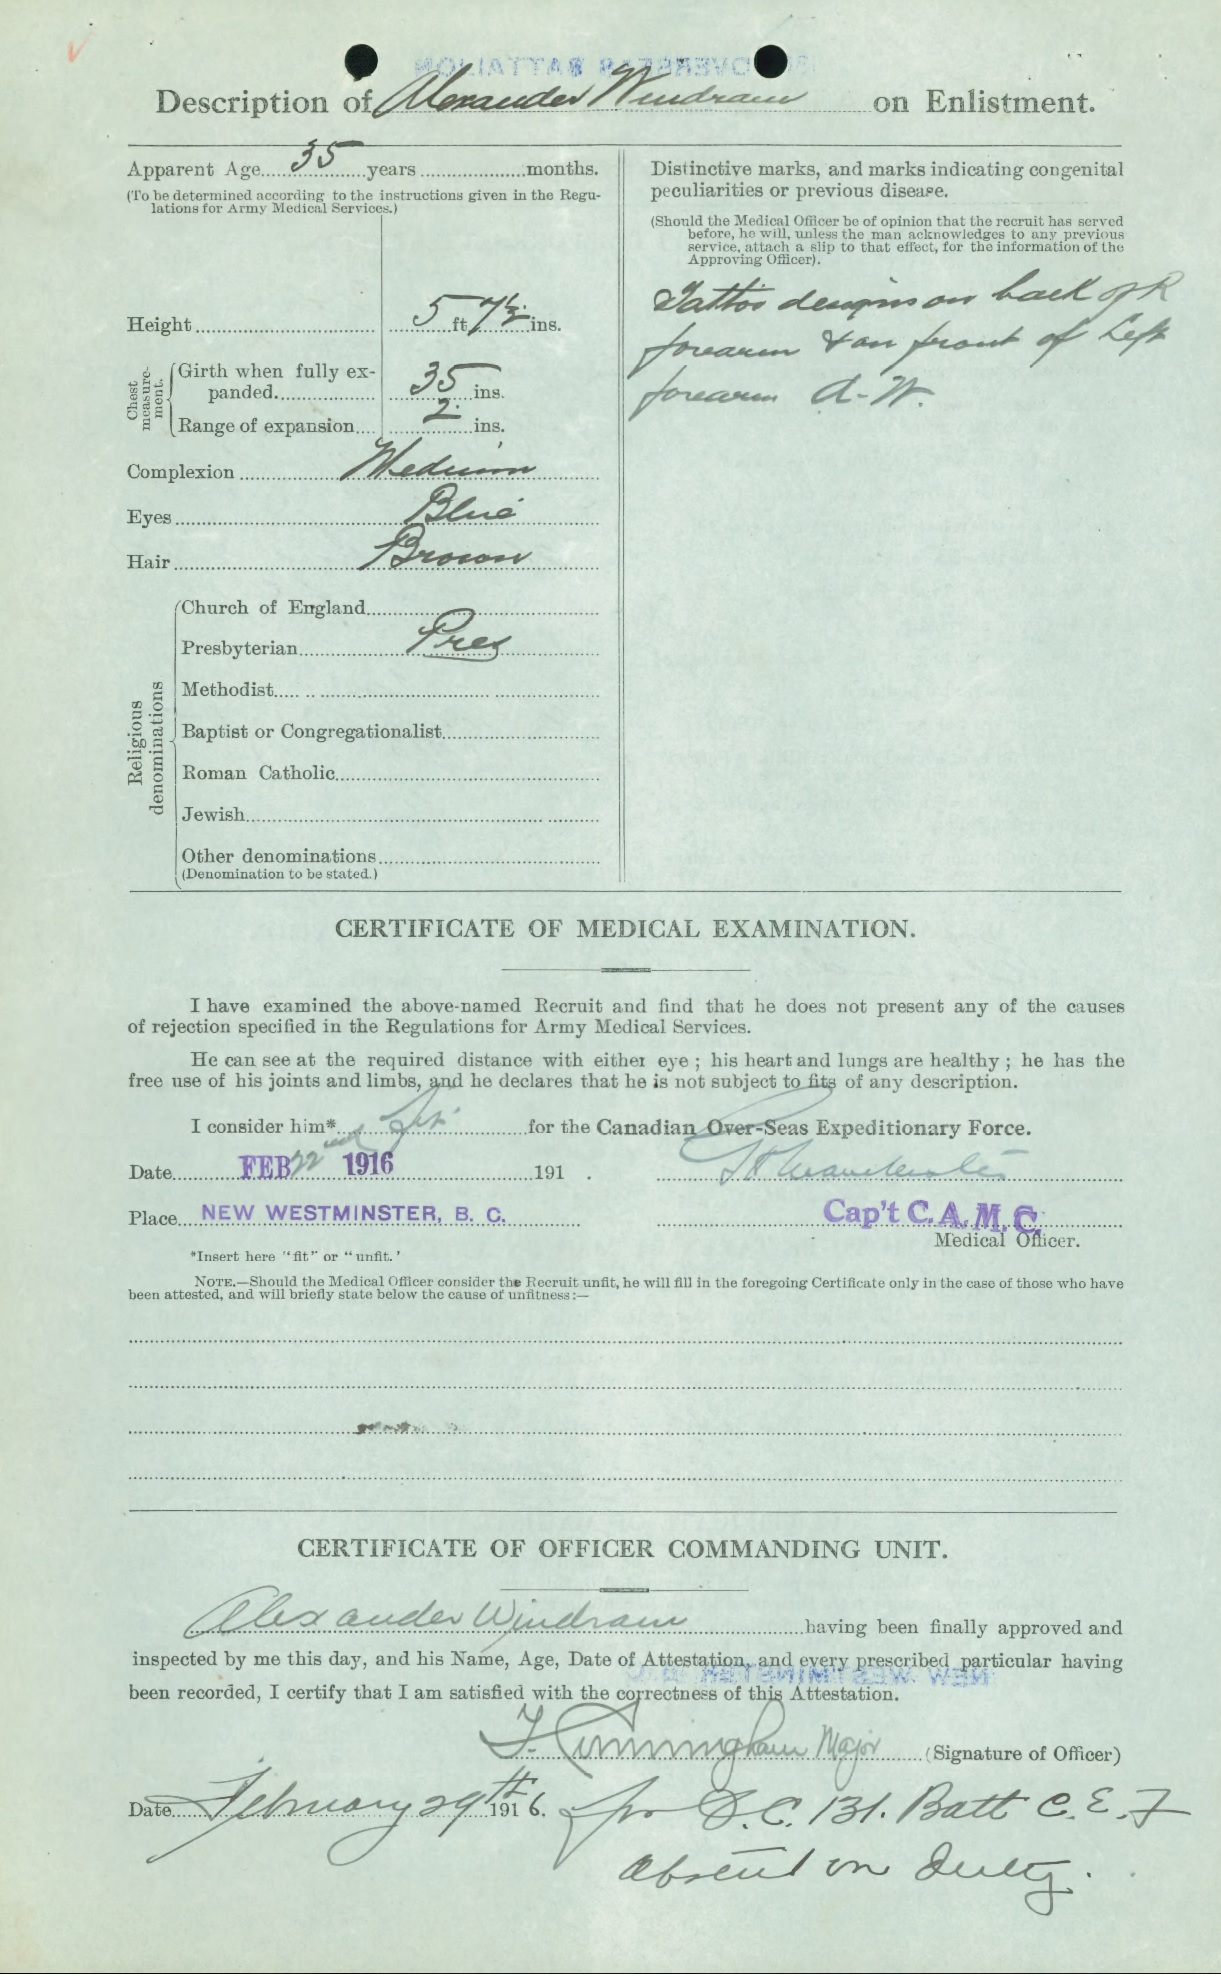 OVERSEAS BATTALION
Description of Alexander Windram on Enlistment.
Apparent Age 35 years months.
(To be determined according to the instructions given in the Regu-
lations for Army Medical Services.)
Height 5 ft 7½ ins.
Chest measure-ment.
Girth when fully ex-
panded. 35 ins.
Range of expansion 2 ins.
Complexion Medium
Eyes Blue
Hair Brown
Religious denominations
Church of England
Presbyterian Pres
Methodist
Baptist or Congregationalist
Roman Catholic
Jewish
Other denominations
(Denomination to be stated.)
Distinctive marks, and marks indicating congenital
peculiarities or previous disease.
(Should the Medical Officer be of opinion that the recruit has served
before, he will, unless the man acknowledges to any previous
service, attach a slip to that effect, for the information of the
Approving Officer).
Tattoo designs on back of R
forearm & on front of Left
forearm A-W.
CERTIFICATE OF MEDICAL EXAMINATION.
I have examined the above-named Recruit and find that he does not present any of the causes
of rejection specified in the Regulations for Army Medical Services.
He can see at the required distance with either eye; his heart and lungs are healthy; he has the
free use of his joints and limbs, and he declares that he is not subject to fits of any description.
I consider him* fit for the Canadian Over-Seas Expeditionary Force.
Date FEB 22nd 1916 191 .
Place NEW WESTMINSTER, B. C. Cap't C.A.M.C.
Medical Officer.
*Insert here "fit" or "unfit."
NOTE.—Should the Medical Officer consider the Recruit unfit, he will fill in the foregoing Certificate only in the case of those who have
been attested, and will briefly state below the cause of unfitness:—
CERTIFICATE OF OFFICER COMMANDING UNIT.
Alexander Windram having been finally approved and
inspected by me this day, and his Name, Age, Date of Attestation, and every prescribed particular having
NEW WESTMINSTER B.C.
been recorded, I certify that I am satisfied with the correctness of this Attestation.
F. Cunningham Major (Signature of Officer)
Date February 29th 1916. for O.C. 131. Batt C.E.F
absent on Duty.